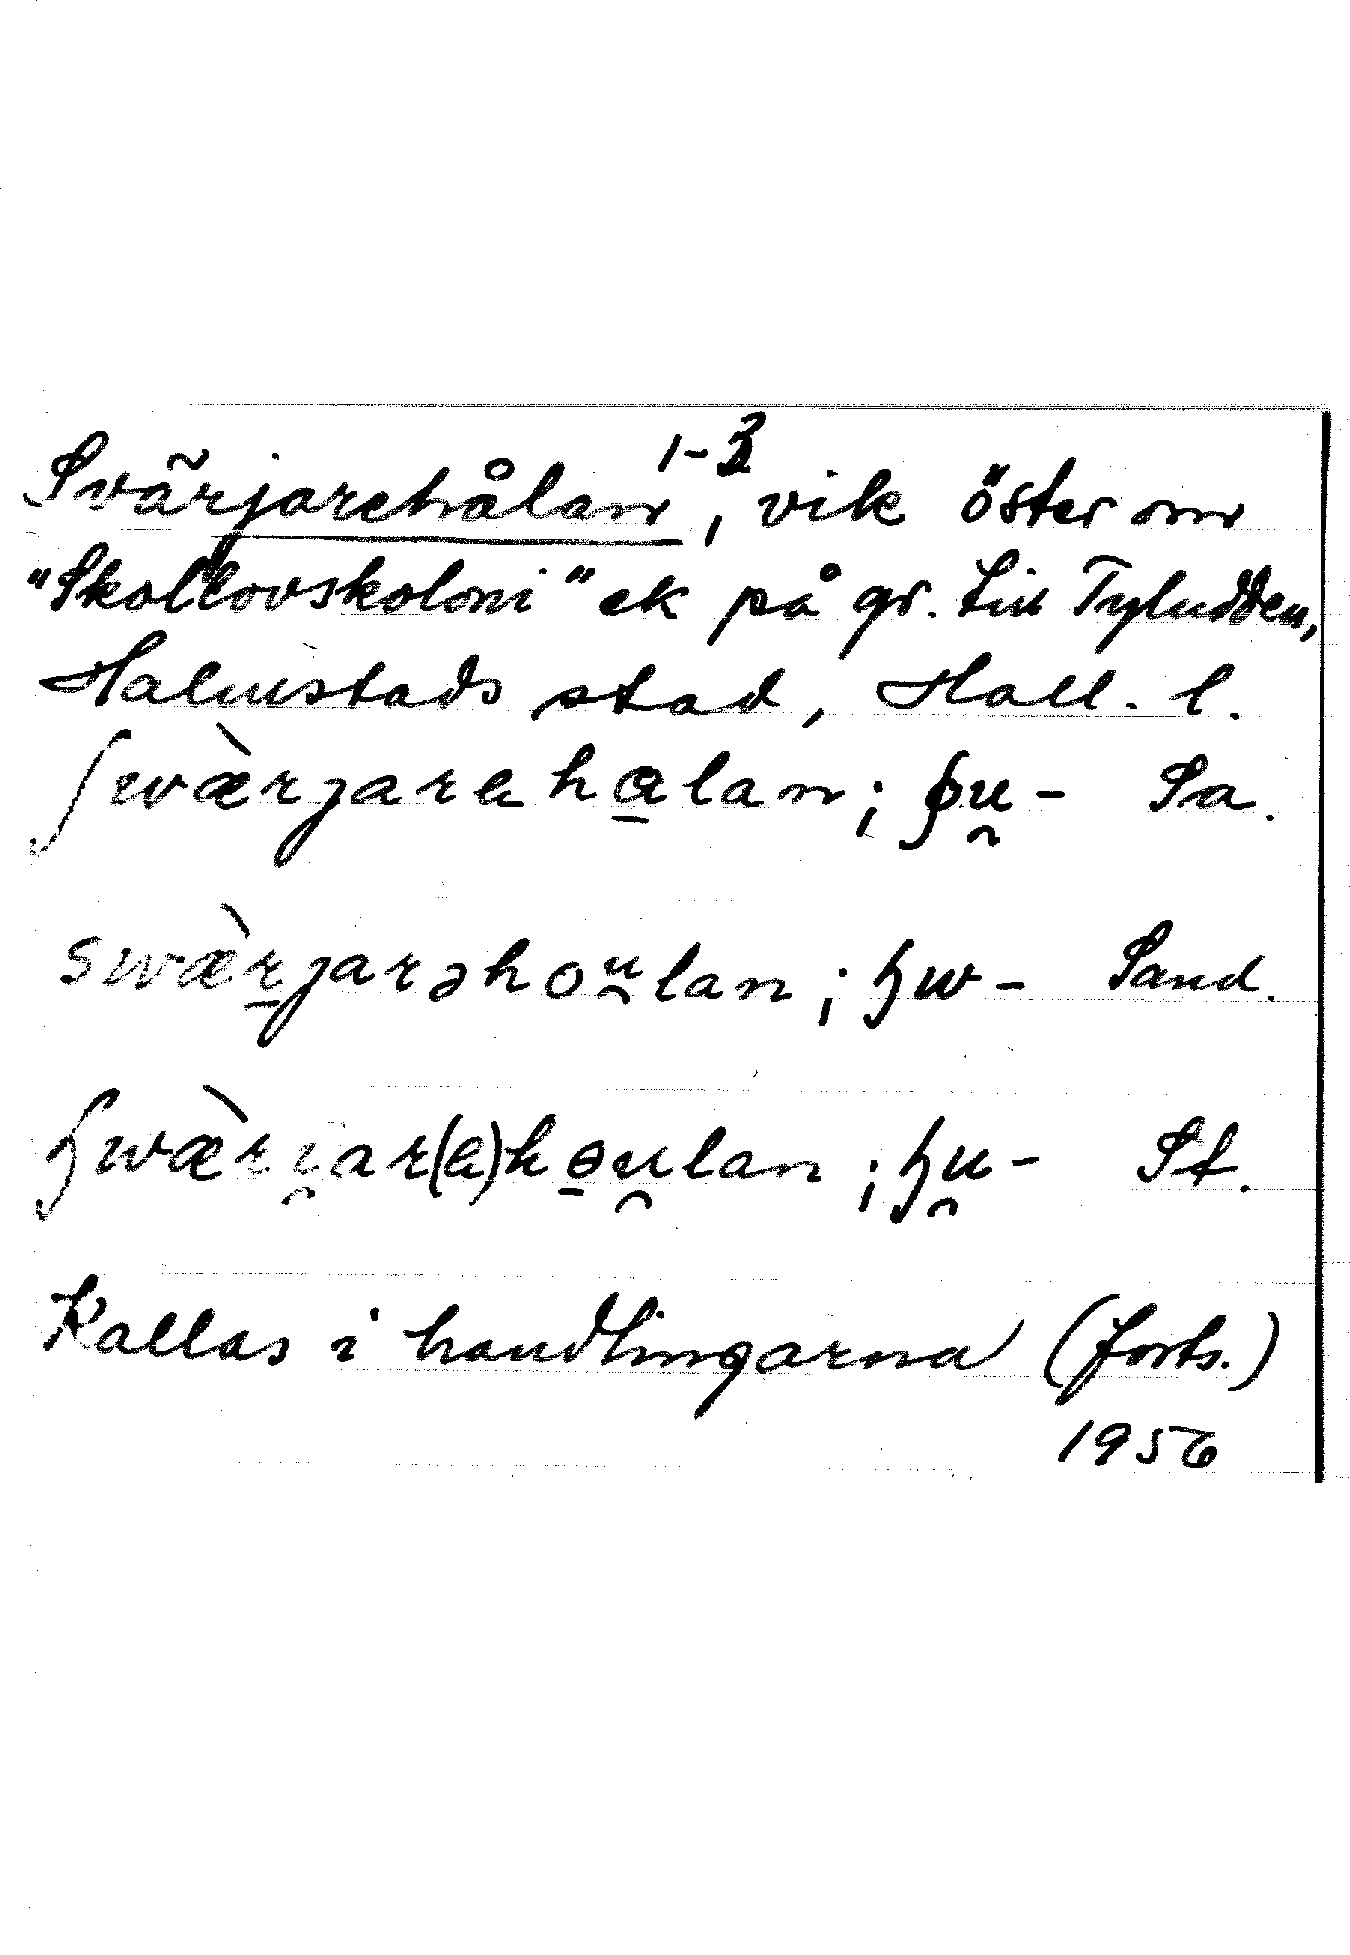 Svärjarehålan 1-3, vik öster om
"Skollovskoloni" ek på gr. till Tyludden,
Halmstads stad, Hall. l.
ʃwæ̀rjarehɑ̲lan; u̯- Sa.
swæ̀r̲jarəhou̯lan; ɧw- Sand.
ɧwæ̀ri̯ar(e)hɵ̲u̯lan; ɧu̯- St.
Kallas i handlingarna (forts.)
1956